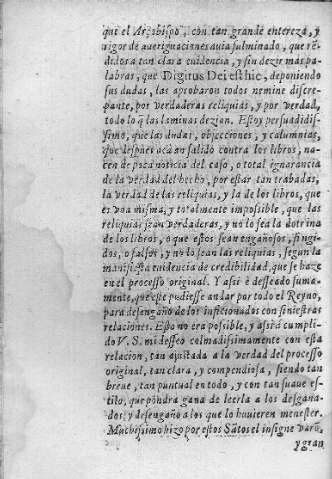 que el Arçobispo, con tan grande entereza, y
rigor de aueriguaciones auia fulminado, que rē-
didos a tan clara euidencia, y sin dezir mas pa-
labras, que Digitus Dei est hic, deponiendo
sus dudas, las aprobaron todos nemine discre-
pante, por verdaderas reliquias, y por verdad,
todo lo q̄ las laminas dezian. Estoy persuadidis-
simo, que las dudas, objecciones, y calumnias,
que despues acà an salido contra los libros, na-
cen de poca noticia del caso, o total ignorancia
de la verdad del hecho, por estar tan trabadas,
la verdad de las reliquias, y la de los libros, que
es vna misma, y totalmente impossible, que las
reliquias sean verdaderas, y no lo sea la dotrina
de los libros, o que estos sean engañosos, fingi-
dos, o falsos, y no lo sean las reliquias, segun la
manifiesta euidencia de credibilidad, que se haze
en el processo original. Y assi è desseado suma-
mente, que este pudiesse andar por todo el Reyno,
para desengaño de los inficionados con siniestras
relaciones. Esto no era possible, y assi à cumpli-
do V. S. mi desseo colmadissimamente con esta
relacion, tan ajustada a la verdad del processo
original, tan clara, y compendiosa, siendo tan
breue, tan puntual en todo, y con tan suaue es-
tilo, que pondra gana de leerla a los desgana-
dos, y desengaño a los que lo huuieren menester.
Muchissimo hizo por estos Sātos el insigne varō,
y gran